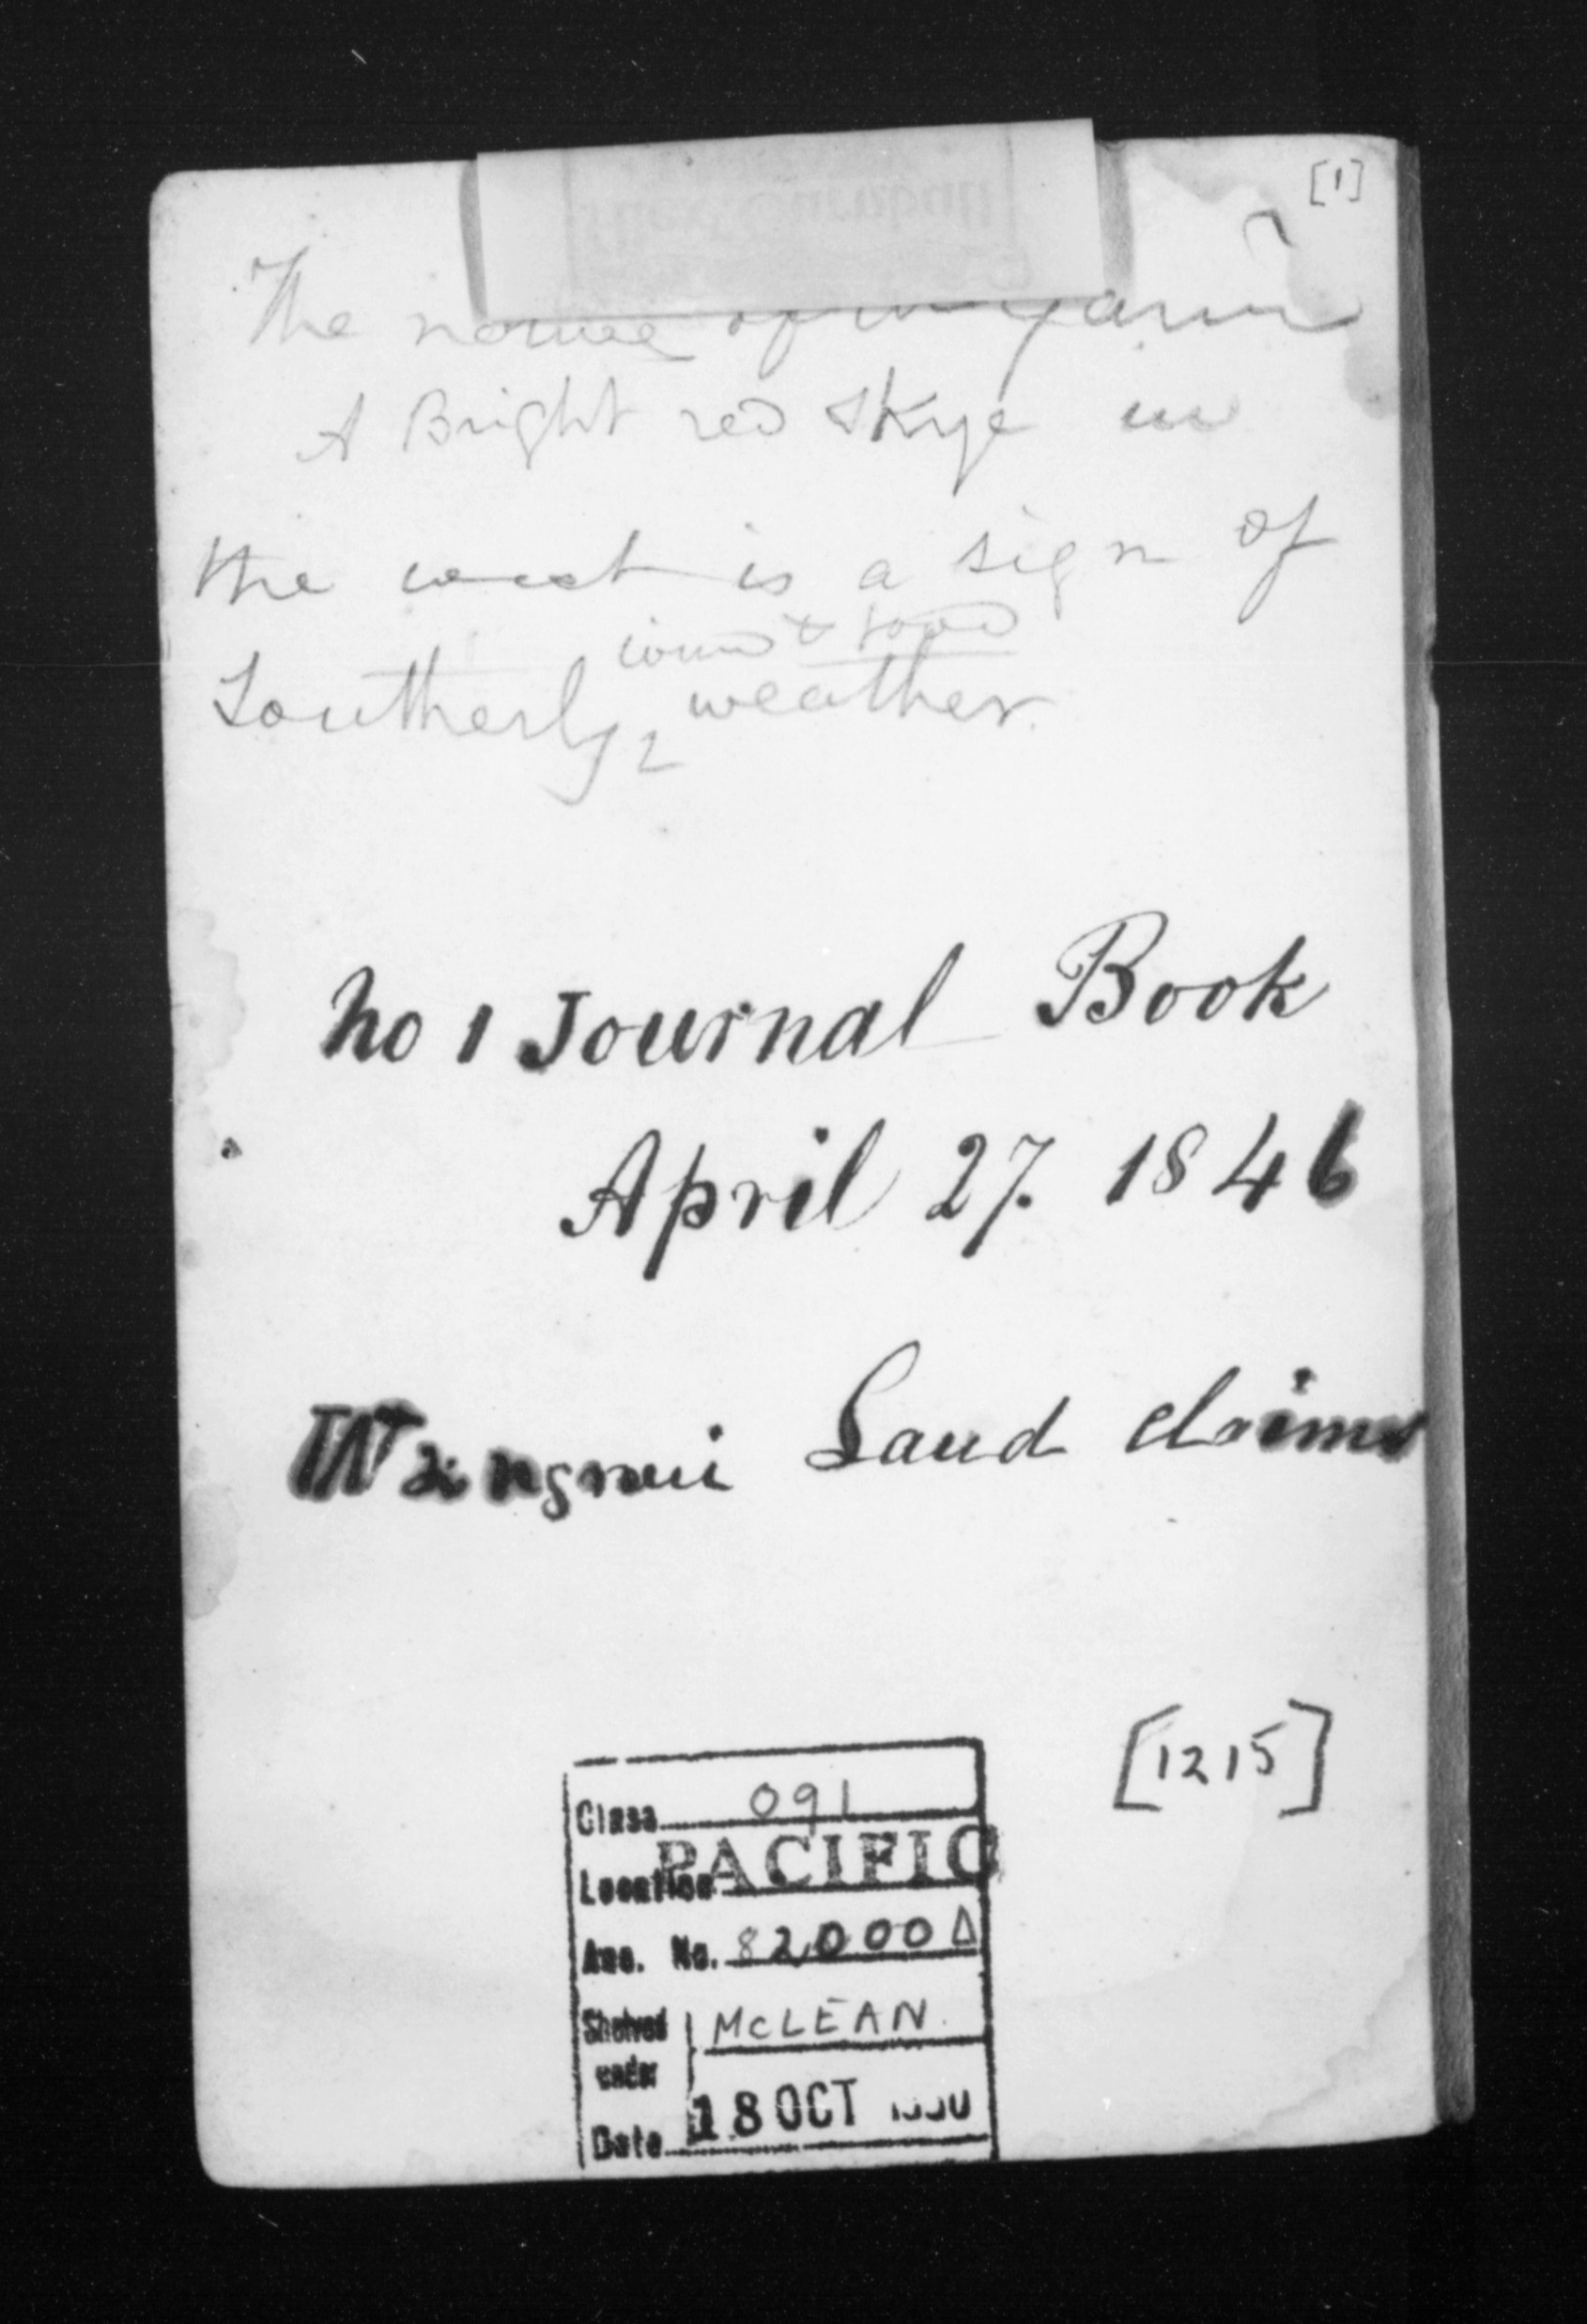 [1]
The of
A Bright red skye in
the west is a sign of
wind &
Southerly weather.
No 1 Journal Book
April 27. 1846
Land claims
[1215]
Class 091
Location PACIFIC
Acc. No. 82000
Shelved under McLEAN.
Date 18 OCT